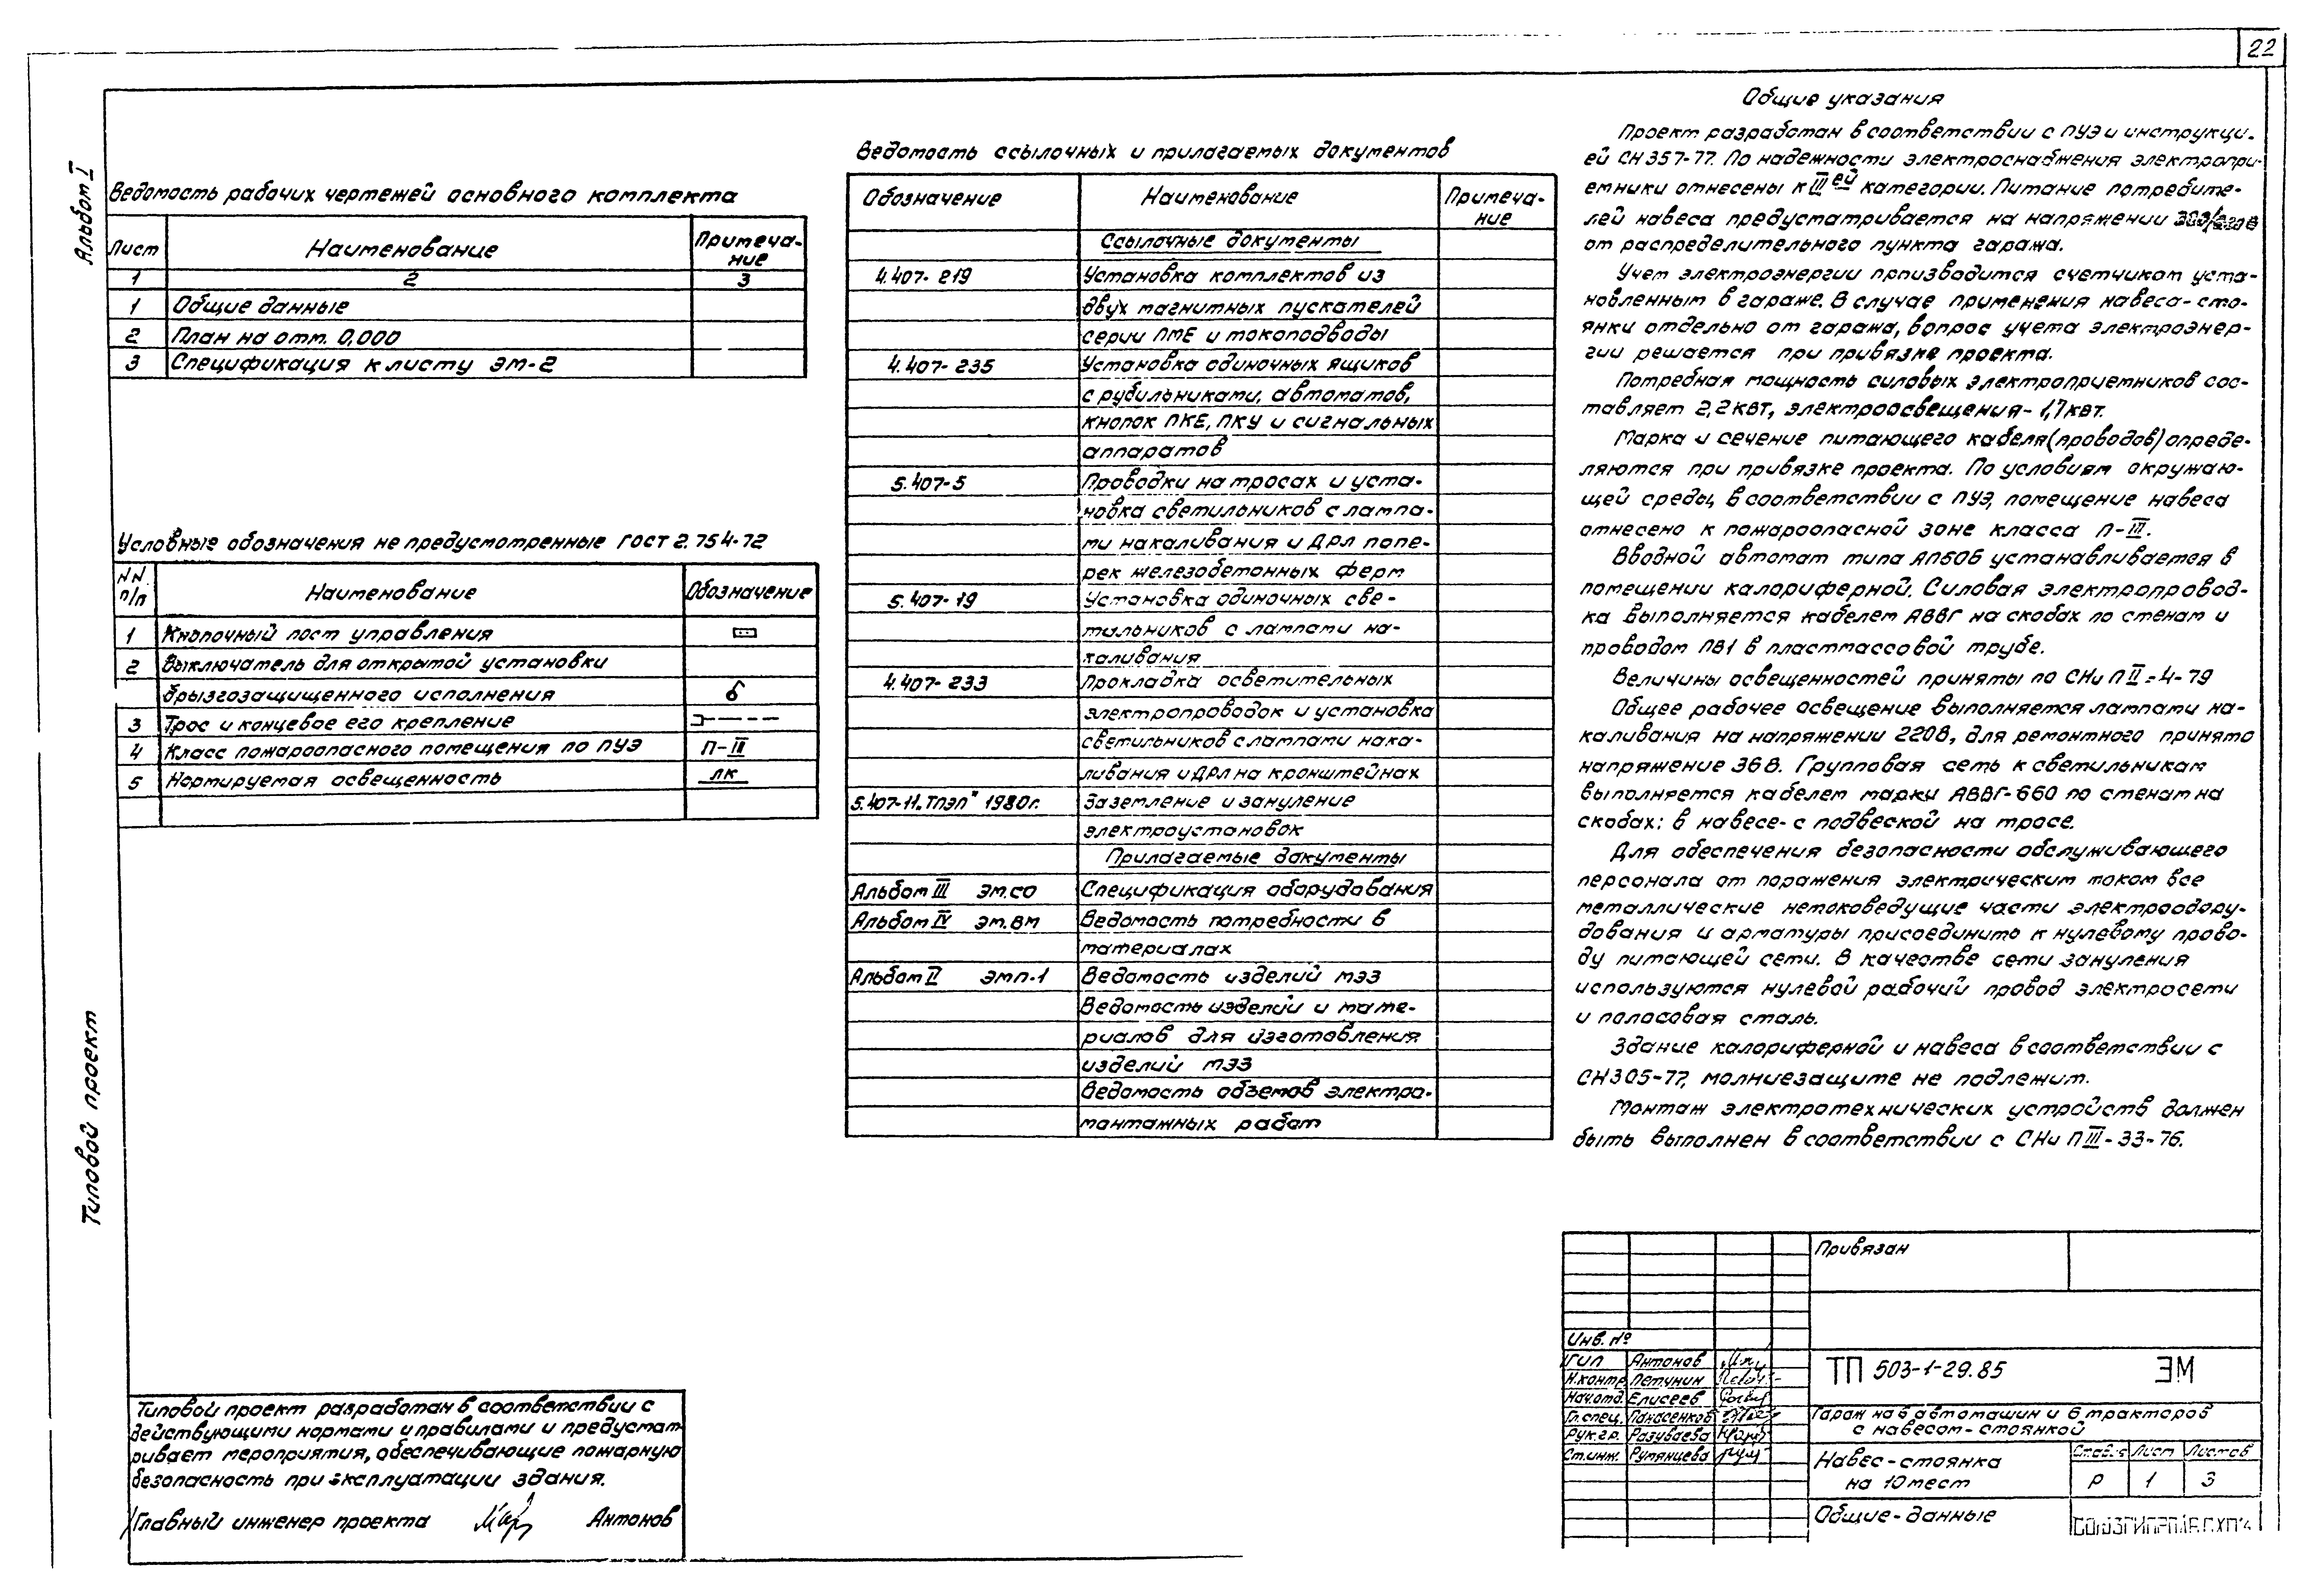 22
Альбом I
Типовой проект
Ведомость рабочих чертежей основного комплекта
Лист Наименование Примеча-
ние
1 2 3
1 Общие данные
2 План на отм. 0,000
3 Спецификация к листу ЭМ-2
Условные обозначения не предусмотренные ГОСТ 2.754-72
NN Наименование Обозначение
п/п
1 Кнопочный пост управления
2 Выключатель для открытой установки
брызгозащищенного исполнения
3 Трос и концевое его крепление
4 Класс пожароопасного помещения по ПУЭ П-III
5 Нормируемая освещенность лк
Типовой проект разработан в соответствии с
действующими нормами и правилами и предусмат
ривает мероприятия, обеспечивающие пожарную
безопасность при эксплуатации здания.
Главный инженер проекта Антонов
Ведомость ссылочных и прилагаемых документов
Обозначение Наименование Примеча-
ние
Ссылочные документы
4.407-219 Установка комплектов из
двух магнитных пускателей
серии ПМЕ и токоподводы
4.407-235 Установка одиночных ящиков
с рубильниками, автоматов,
кнопок ПКЕ, ПКУ и сигнальных
аппаратов
5.407-5 Проводки на тросах и уста-
новка светильников с лампа-
ми накаливания и ДРЛ попе-
рек железобетонных ферм
5.407-19 Установка одиночных све-
тильников с лампами на-
каливания
4.407-233 Прокладка осветительных
электропроводок и установка
светильников с лампами нака-
ливания и ДРЛ на кронштейнах
5.407-11.ТПЭП" 1980г. Заземление и зануление
электроустановок
Прилагаемые документы
Альбом III ЭМ.СО Спецификация оборудования
Альбом IV ЭМ.ВМ Ведомость потребности в
материалах
Альбом II ЭМП-1 Ведомость изделий МЭЗ
Ведомость изделий и мате-
риалов для изготовления
изделий МЭЗ
Ведомость объемов электро-
монтажных работ
Общие указания
Проект разработан в соответствии с ПУЭ и инструкци-
ей СН 357-77. По надежности электроснабжения электропри-
емники отнесены к III ей категории. Питание потребите-
лей навеса предусматривается на напряжении
от распределительного пункта гаража.
Учет электроэнергии производится счетчиком уста-
новленным в гараже. В случае применения навеса-сто-
янки отдельно от гаража, вопрос учета электроэнер-
гии решается при привязке проекта.
Потребная мощность силовых электроприемников сос-
тавляет 2,2 квт, электроосвещения- 1,7 квт.
Марка и сечение питающего кабеля (проводов) опреде-
ляются при привязке проекта. По условиям окружаю-
щей среды, в соответствии с ПУЭ, помещение навеса
отнесено к пожароопасной зоне класса П-III.
Вводной автомат типа АП50Б устанавливается в
помещении калориферной. Силовая электропровод-
ка выполняется кабелем АВВГ на скобах по стенам и
проводом ПВ1 в пластмассовой трубе.
Величины освещенностей приняты по СНиП II-4-79
Общее рабочее освещение выполняется лампами на-
каливания на напряжении 220В, для ремонтного принято
напряжение 36В. Групповая сеть к светильникам
выполняется кабелем марки АВВГ-660 по стенам на
скобах; в навесе- с подвеской на тросе.
Для обеспечения безопасности обслуживающего
персонала от поражения электрическим током все
металлические нетоковедущие части электрообору-
дования и арматуры присоединить к нулевому прово-
ду питающей сети. В качестве сети зануления
используются нулевой рабочий провод электросети
и полосовая сталь.
Здание калориферной и навеса в соответствии с
СН305-77, молниезащите не подлежит.
Монтаж электротехнических устройств должен
быть выполнен в соответствии с СНиП III-33-76.
Привязан
Инв. №
ГИП Антонов
Н.контр Петунин
Нач.отд. Елисеев
Гл.спец. Панасенков
Рук.гр. Разуваева
Ст.инж. Румянцева
ТП 503-1-29.85 ЭМ
Гараж на 6 автомашин и 6 тракторов
с навесом-стоянкой
Навес-стоянка
на 10 мест
Стадия Лист Листов
Р 1 3
Общие-данные